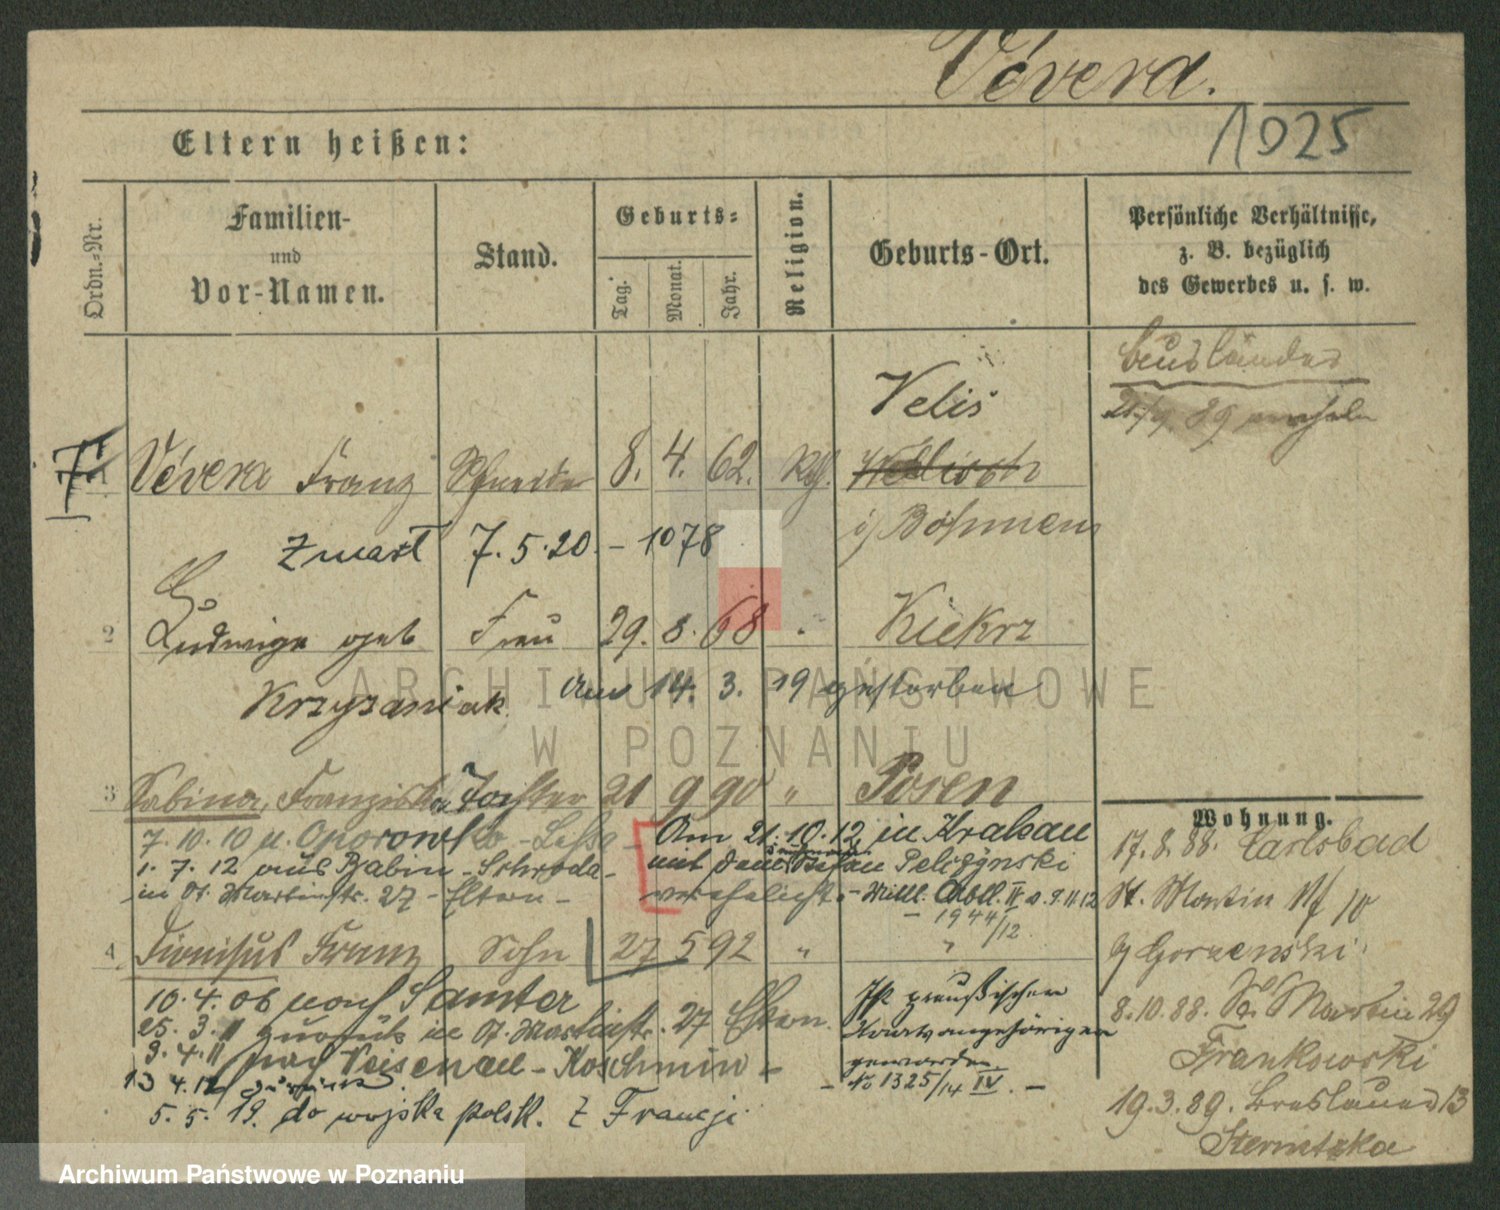 Vévera.
1025
Eltern heißen:
Ordn.-Nr.
Familien-
und
Vor-Namen.
Stand.
Geburts-
Tag.
Monat.
Jahr.
Religion.
Geburts-Ort.
Persönliche Verhältnisse,
z. B. bezüglich
des Gewerbes u. s. w.
Ausländer
Veliš
Vévera Franz Schneider 8. 4. 62. Kath.
i/ Böhmen
zmarł 7. 5. 20. – 1078
2 Ludwiga geb Frau 29. 8. 68 Kiekrz
Krzyzaniak Am 14. 3. 19 gestorben
3 Sabina, Franziska Tochter 21 9 90 " Posen
7. 10. 10 n. Oporowko - Lissa -
1. 7. 12 aus Babin - Schroda -
in St. Martinstr. 27 - Eltern -
Am 21. 10. 12 in Krakau
mit dem Stefan Pelczynski
verehelicht. - Mittl. Abtl. IV v. 9. 11. 12
1944/12
4 Dionisius Franz Sohn 27 5 92 " "
10. 4. 06 nach Samter
25. 3. 11 zurück in St. Martinstr. 27 Eltern.
9. 4. 11 nach - Koschmin -
13 4. 12 zurück
5. 5. 19. do wojska polsk. z Francji
Ist preußischer
Staatsangehöriger
geworden
- No 1325/14 IV. -
Wohnung.
17. 8. 88. Carlsbad
St. Martin 10
Gorzenski
8. 10. 88. St. Martin 29
Frankowski
19. 3. 89. Breslauer 13
ARCHIWUM PAŃSTWOWE
W POZNANIU
Archiwum Państwowe w Poznaniu